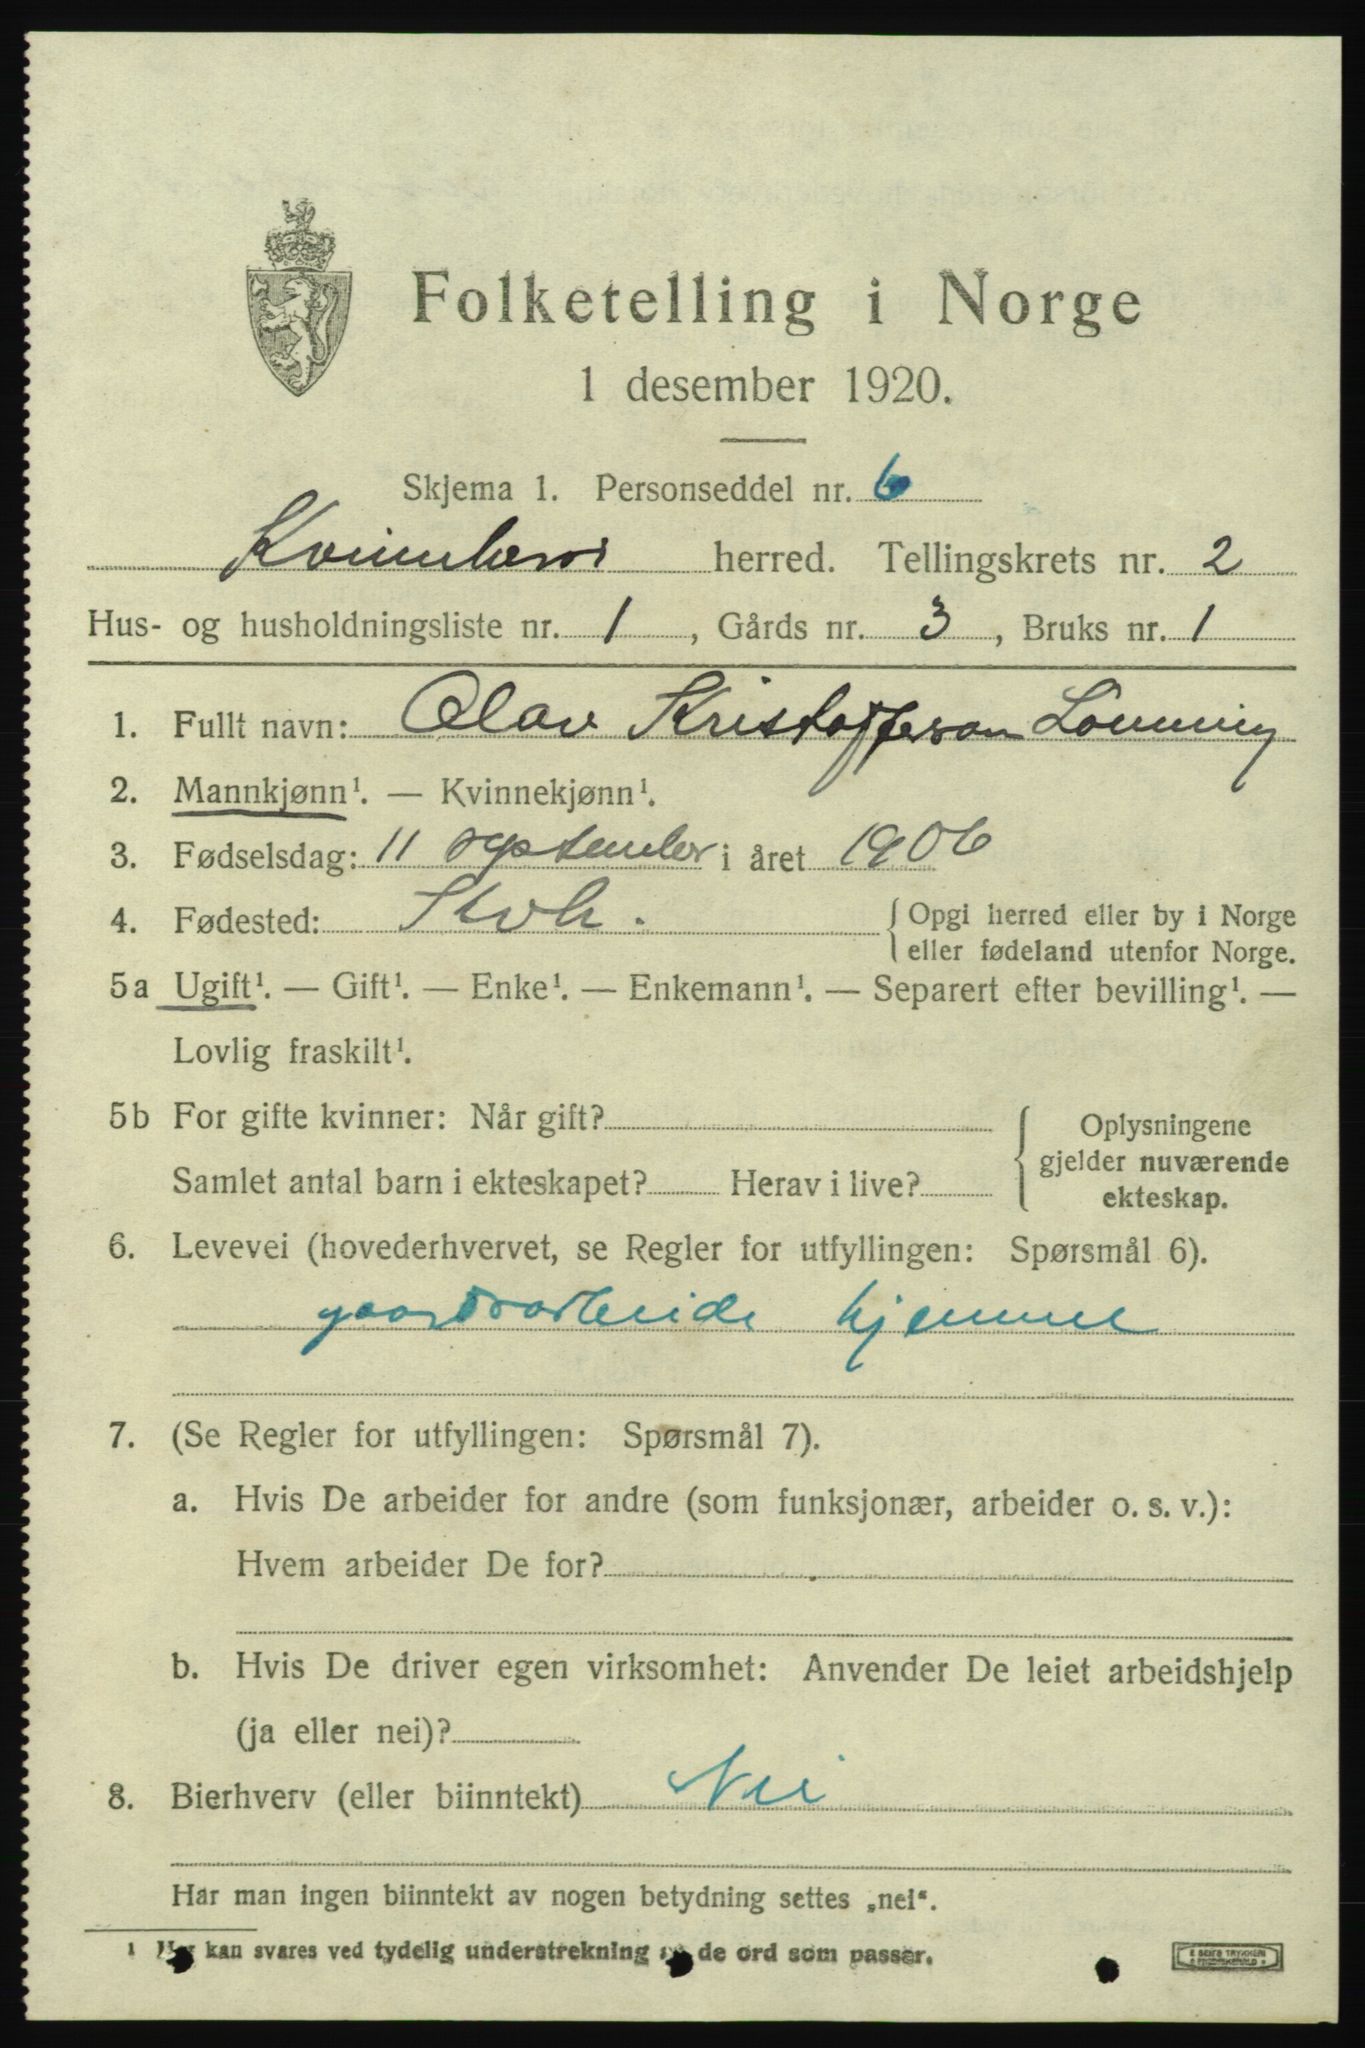 Folketelling i Norge
1 desember 1920.
Skjema 1. Personseddel nr. 6
Kvinnherad herred. Tellingskrets nr. 2
Hus- og husholdningsliste nr. 1, Gårds nr. 3, Bruks nr. 1
1. Fullt navn: Olav Kristofferson Lønning
2. Mannkjønn¹. — Kvinnekjønn¹.
3. Fødselsdag: 11 september i året 1906
4. Fødested: { Opgi herred eller by i Norge
eller fødeland utenfor Norge.
5a Ugift¹. — Gift¹. — Enke¹. — Enkemann¹. — Separert efter bevilling¹. —
Lovlig fraskilt¹.
5b For gifte kvinner: Når gift?
Samlet antal barn i ekteskapet? Herav i live?
{ Oplysningene
gjelder nuværende
ekteskap.
6. Levevei (hovederhvervet, se Regler for utfyllingen: Spørsmål 6).
gaardsarbeide hjemme
7. (Se Regler for utfyllingen: Spørsmål 7).
a. Hvis De arbeider for andre (som funksjonær, arbeider o. s. v.):
Hvem arbeider De for?
b. Hvis De driver egen virksomhet: Anvender De leiet arbeidshjelp
(ja eller nei)?
8. Bierhverv (eller biinntekt) Nei
Har man ingen biinntekt av nogen betydning settes „nei“.
¹ Her kan svares ved tydelig understrekning av de ord som passer.